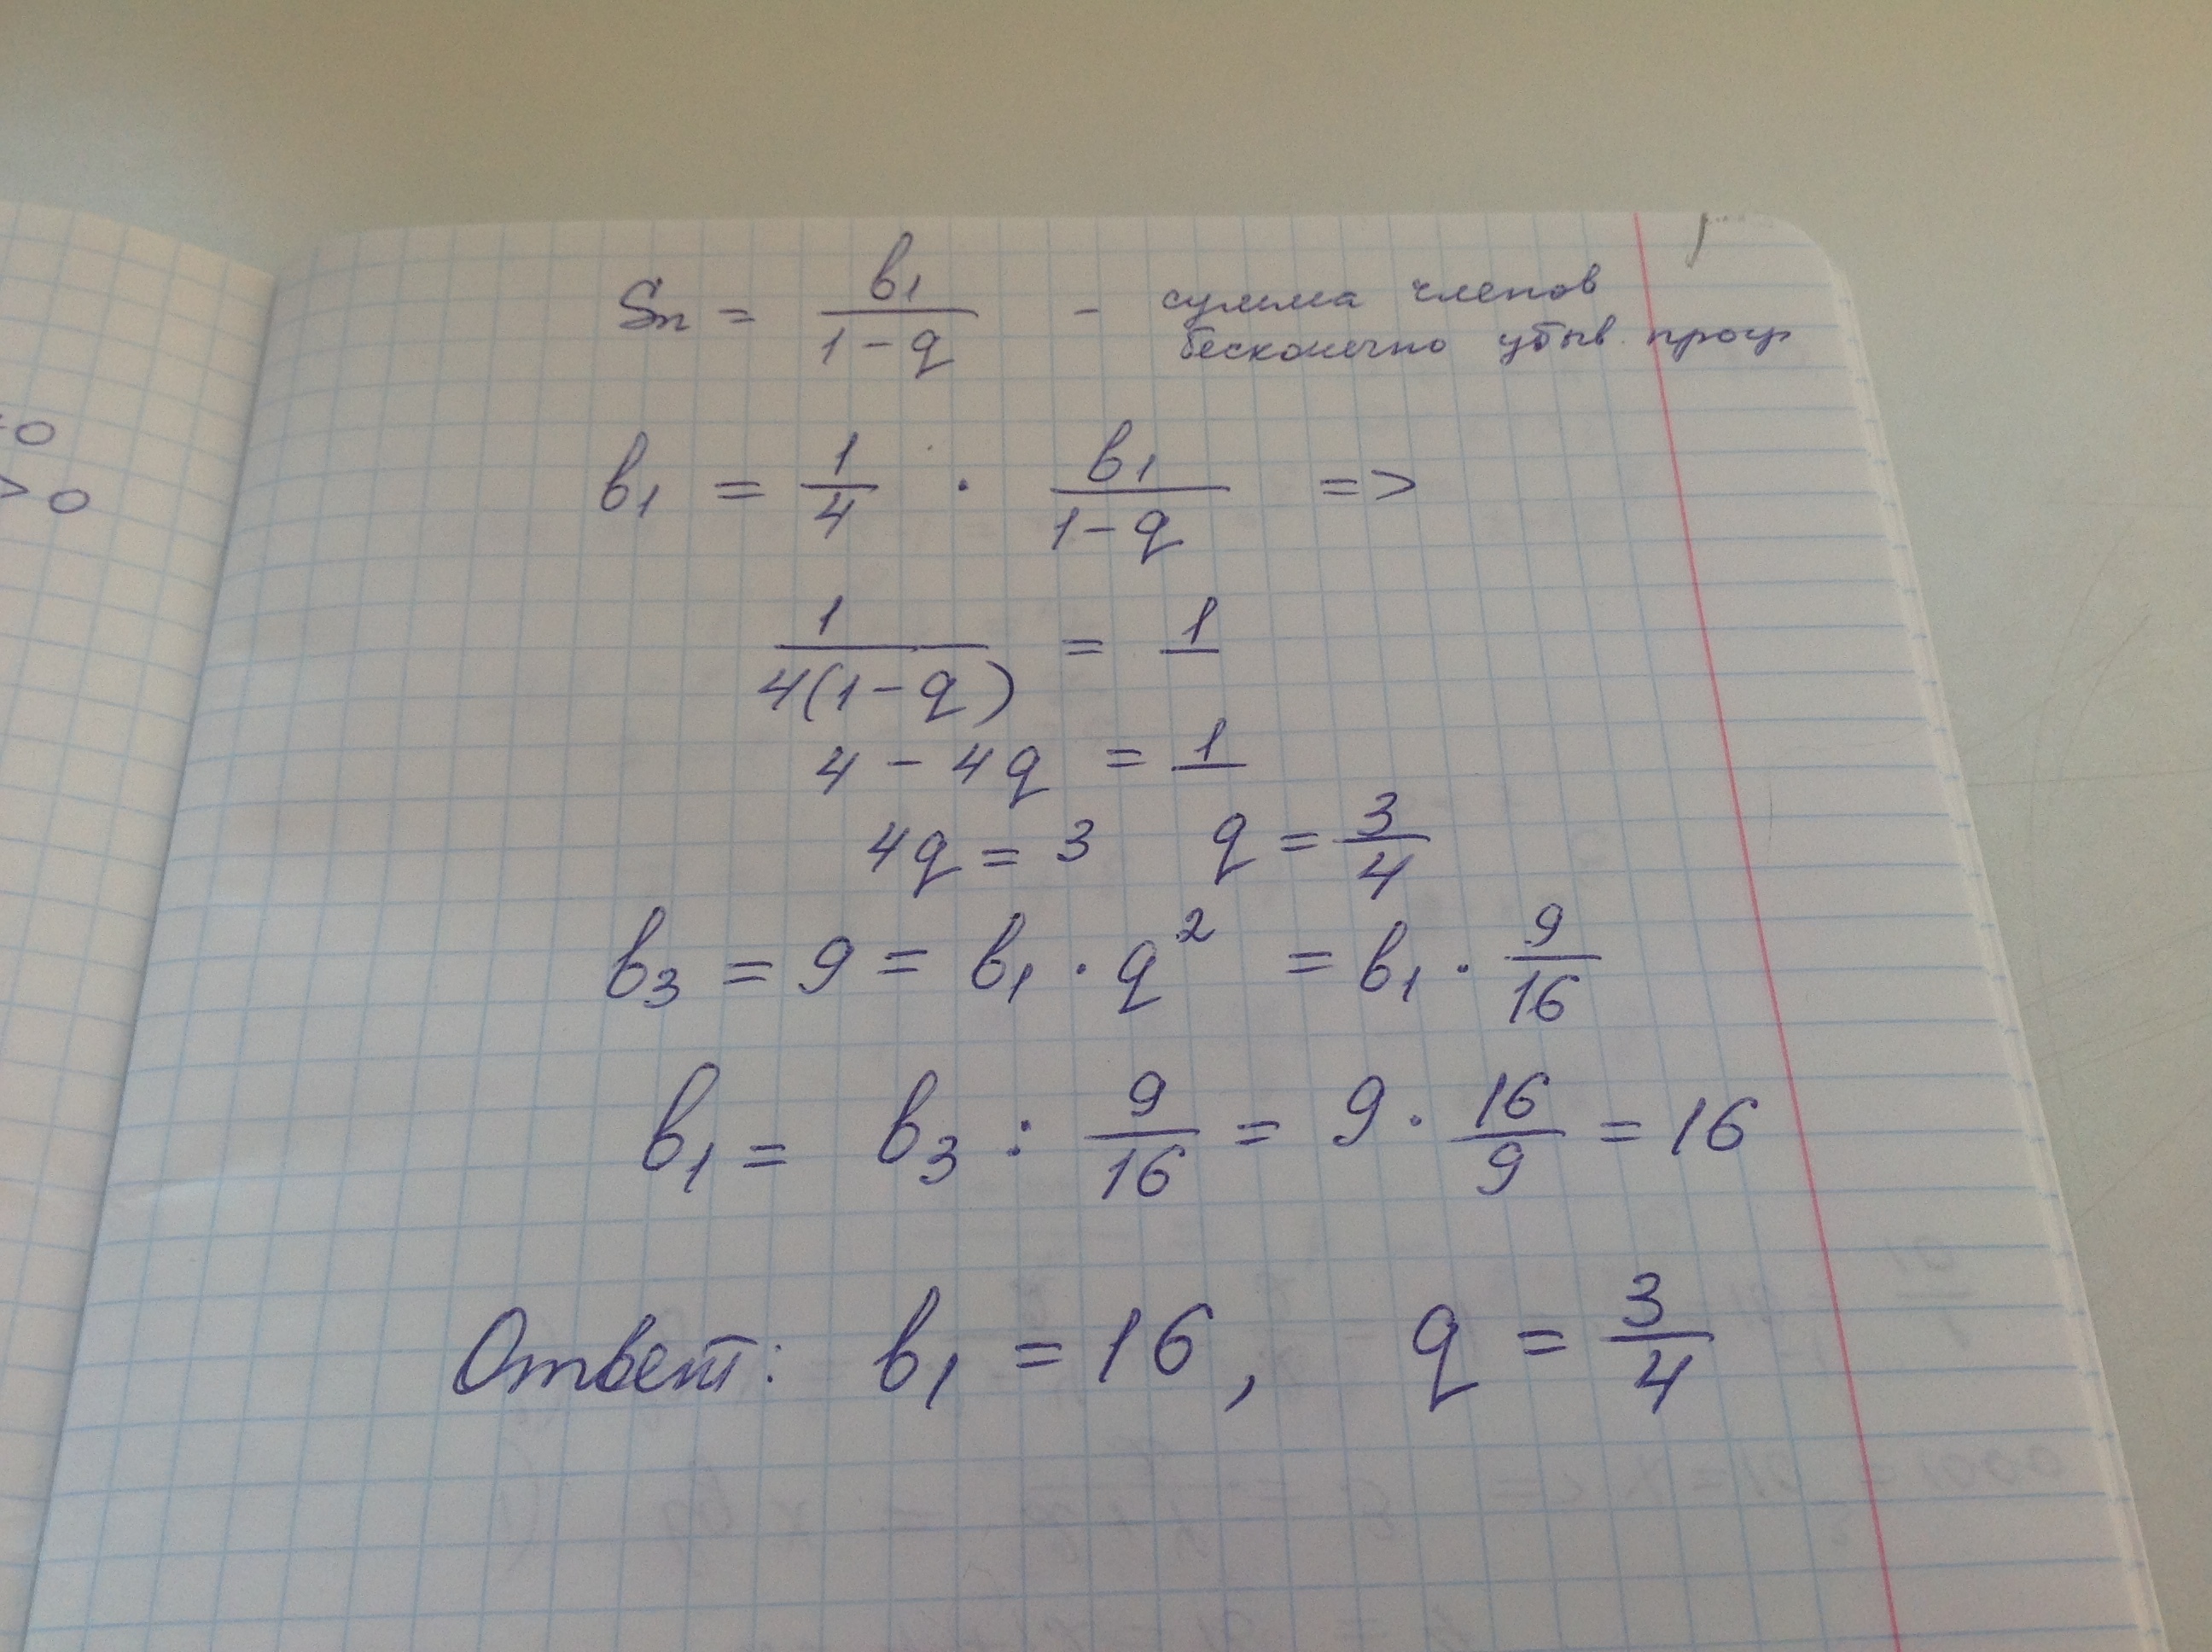 =0
> 0
Sn = b1/(1-q) - сумма членов
бесконечно убыв. прогр
b1 = 1/4 · b1/(1-q) =>
1/(4(1-q)) = 1
4 - 4q = 1
4q = 3 q = 3/4
b3 = 9 = b1 · q² = b1 · 9/16
b1 = b3 : 9/16 = 9 · 16/9 = 16
Ответ: b1 = 16, q = 3/4